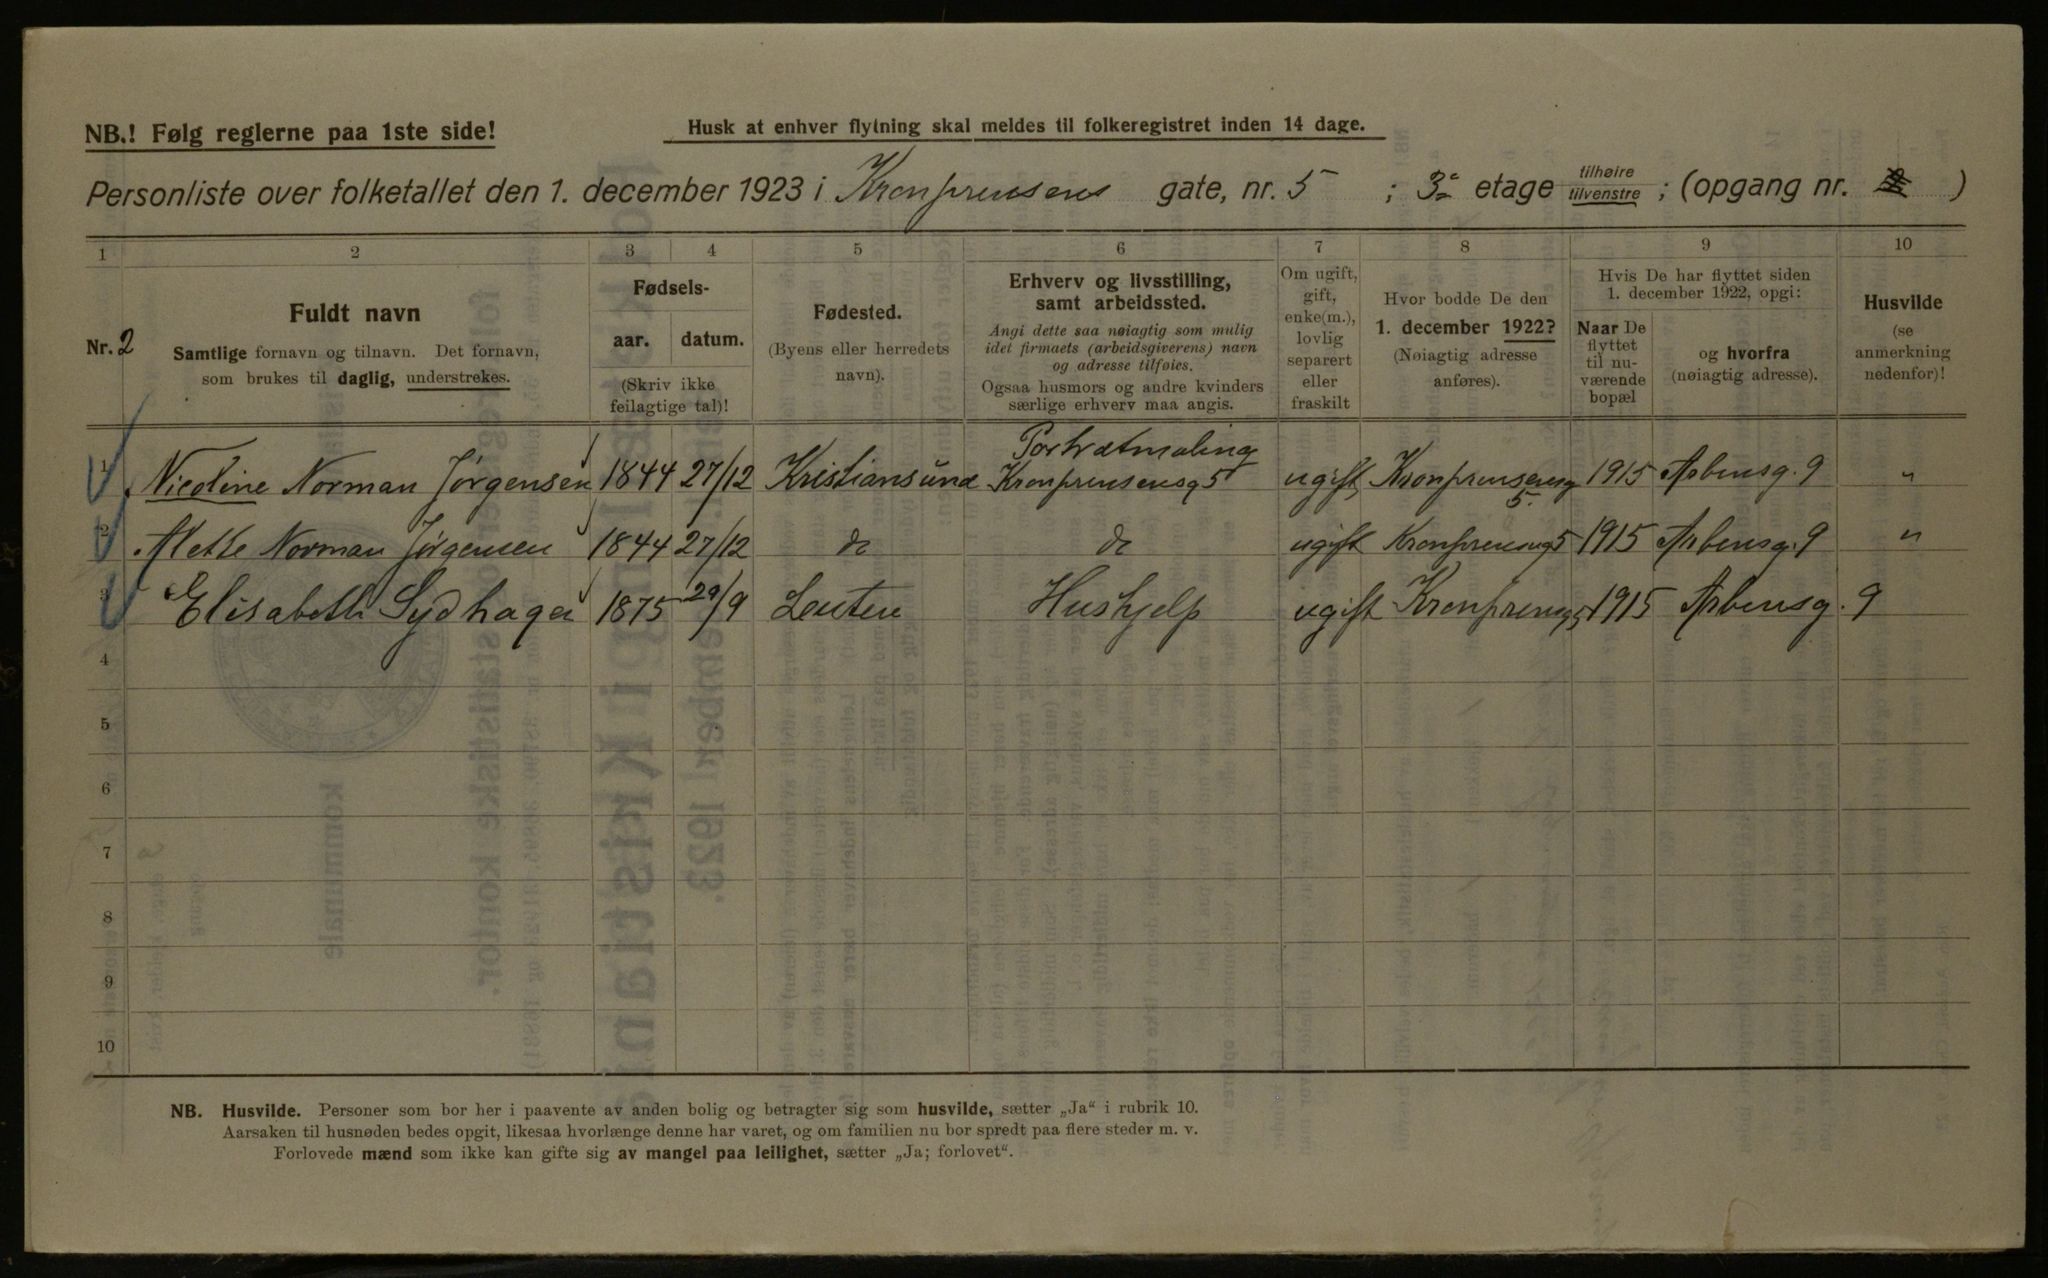 NB.! Følg reglerne paa 1ste side!
Husk at enhver flytning skal meldes til folkeregistret inden 14 dage.
Personliste over folketallet den 1. december 1923 i Kronprensens gate, nr. 5 ; 3º etage tilhøire tilvenstre ; (opgang nr. )
1 2 3 4 5 6 7 8 9 10
Nr. 2
Fuldt navn
Samtlige fornavn og tilnavn. Det fornavn,
som brukes til daglig, understrekes.
Fødsels-
aar. datum.
(Skriv ikke
feilagtige tal)!
Fødested.
(Byens eller herredets
navn).
Erhverv og livsstilling,
samt arbeidssted.
Angi dette saa nøiagtig som mulig
idet firmaets (arbeidsgiverens) navn
og adresse tilføies.
Ogsaa husmors og andre kvinders
særlige erhverv maa angis.
Om ugift,
gift,
enke(m.),
lovlig
separert
eller
fraskilt
Hvor bodde De den
1. december 1922?
(Nøiagtig adresse
anføres).
Hvis De har flyttet siden
1. december 1922, opgi:
Naar De
flyttet
til nu-
værende
bopæl
og hvorfra
(nøiagtig adresse).
Husvilde
(se
anmerkning
nedenfor)!
Portrætmaling
1 Nicoline Norman Jørgensen 1844 27/12 Kristiansund Kronprensensg 5 ugift Kronprensensg 5. 1915 Arbensg. 9 "
2 Mette Norman Jørgensen 1844 27/12 do do ugift Kronprensg 5 1915 Arbensg. 9 "
3 Elisabeth Sydhagen 1875 29/9 Leuten Hushjelp ugift Kronprensg 5 1915 Arbensg. 9
4
5
6
7
8
9
10
NB. Husvilde. Personer som bor her i paavente av anden bolig og betragter sig som husvilde, sætter „Ja“ i rubrik 10.
Aarsaken til husnøden bedes opgit, likesaa hvorlænge denne har varet, og om familien nu bor spredt paa flere steder m. v.
Forlovede mænd som ikke kan gifte sig av mangel paa leilighet, sætter „Ja; forlovet“.